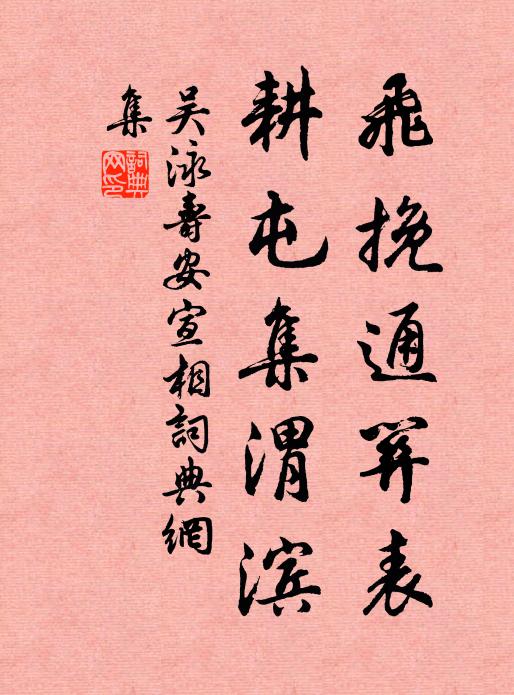 飛挽通關表
耕屯集渭濱
吴泳壽安宣相詞典網
集
詞典网印